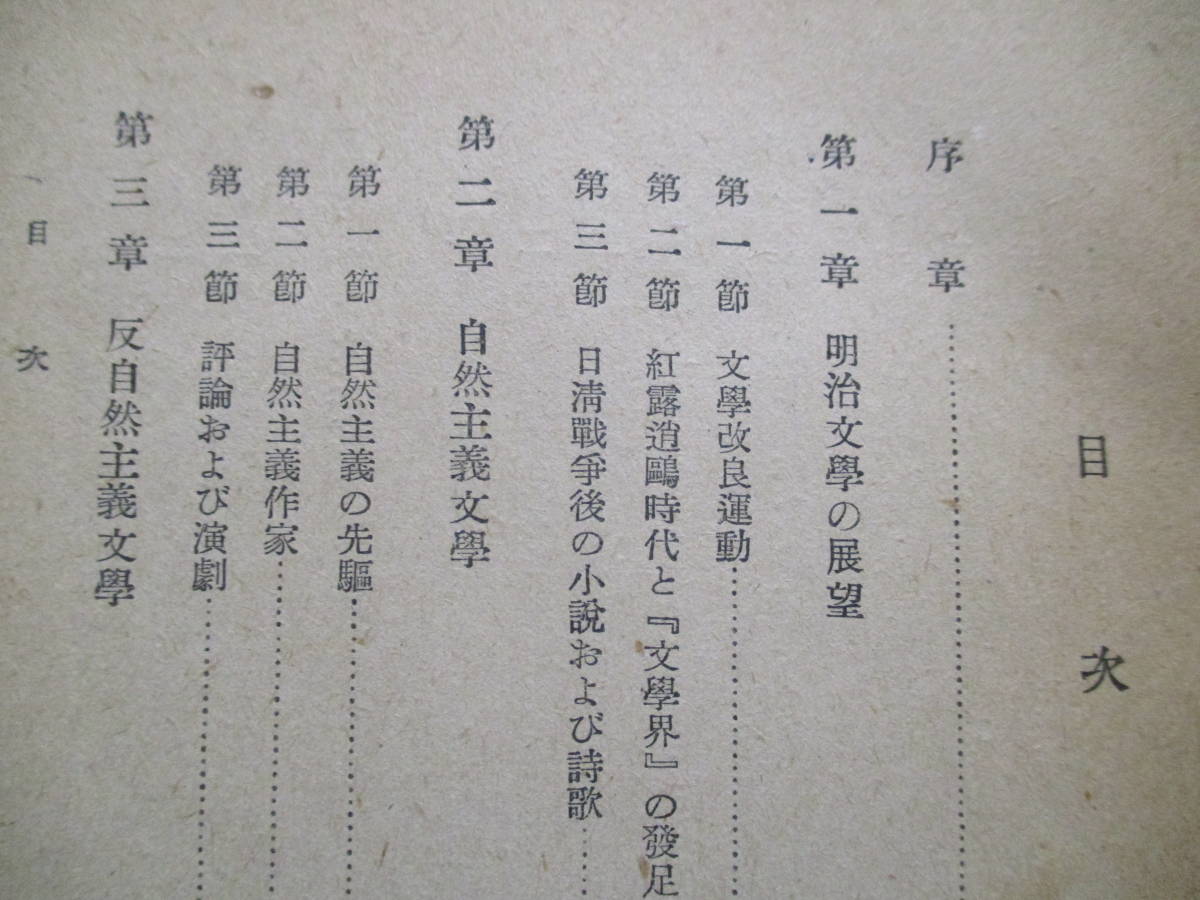 目次
序章……………
第一章 明治文學の展望
第一節 文學改良運動……………
第二節 紅露逍鷗時代と『文學界』の發足
第三節 日淸戰爭後の小說および詩歌……
第二章 自然主義文學
第一節 自然主義の先驅……………
第二節 自然主義作家……………
第三節 評論および演劇……………
第三章 反自然主義文學
目次